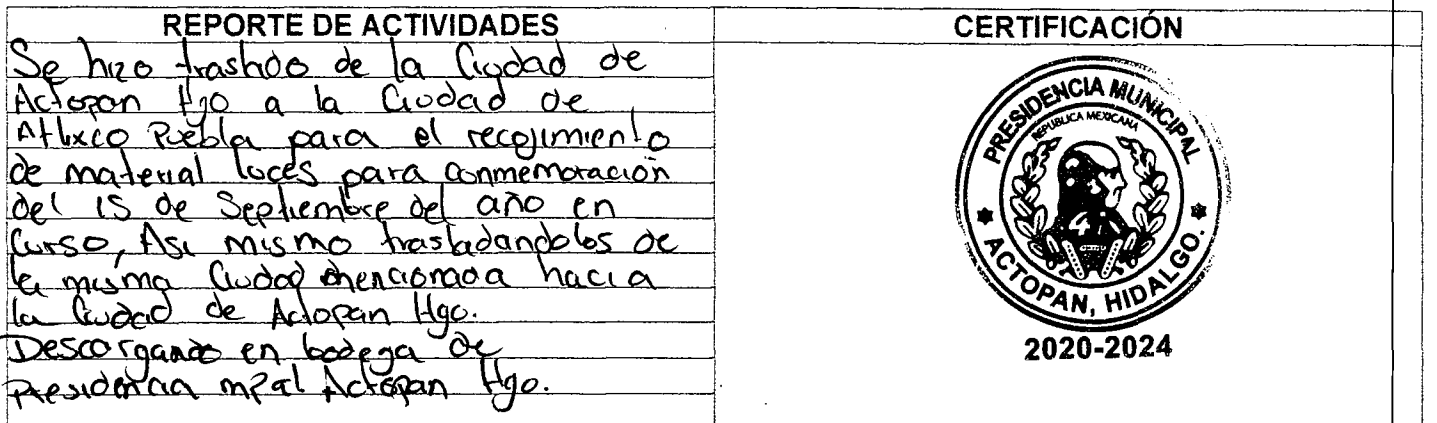 REPORTE DE ACTIVIDADES
Se hizo traslado de la Ciudad de
Actopan Hgo a la Ciudad de
Atlixco Puebla para el recojimiento
de material luces para conmemoración
del 15 de Septiembre del año en
Curso, Asi mismo trasladandolos de
la misma Ciudad mencionada hacia
la Ciudad de Actopan Hgo.
Descargando en bodega de
Presidencia mpal Actopan Hgo.
CERTIFICACIÓN
PRESIDENCIA MUNICIPAL
REPUBLICA MEXICANA
ACTOPAN, HIDALGO.
2020-2024